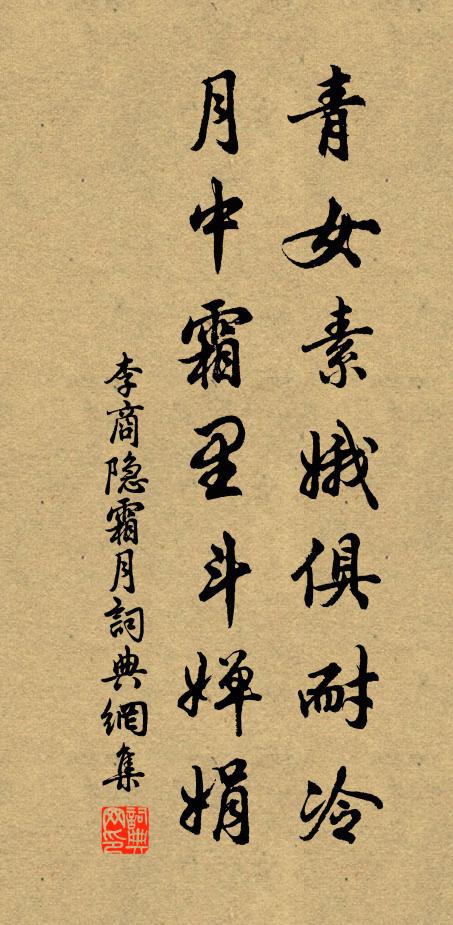 青女素娥俱耐冷
月中霜里斗婵娟
李商隐霜月詞典網集
詞典网印